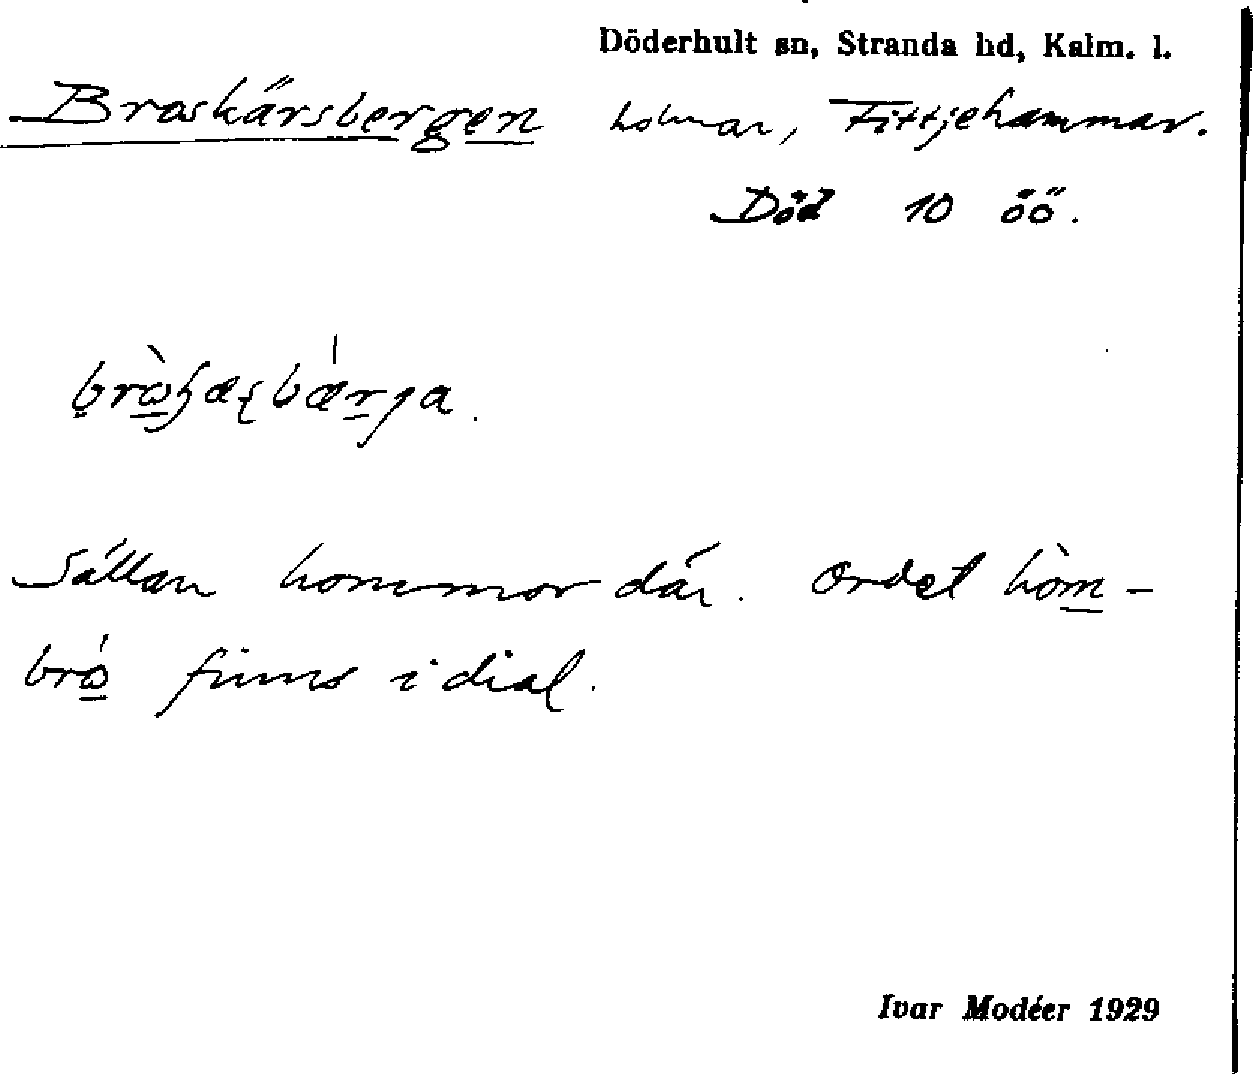 Döderhult sn, Stranda hd, Kalm. l.
Broskärsbergen holmar, Fittjehammar.
Död 10 öö.
Sällan hommor där. Ordet hòm-
brò finns i dial.
Ivar Modéer 1929